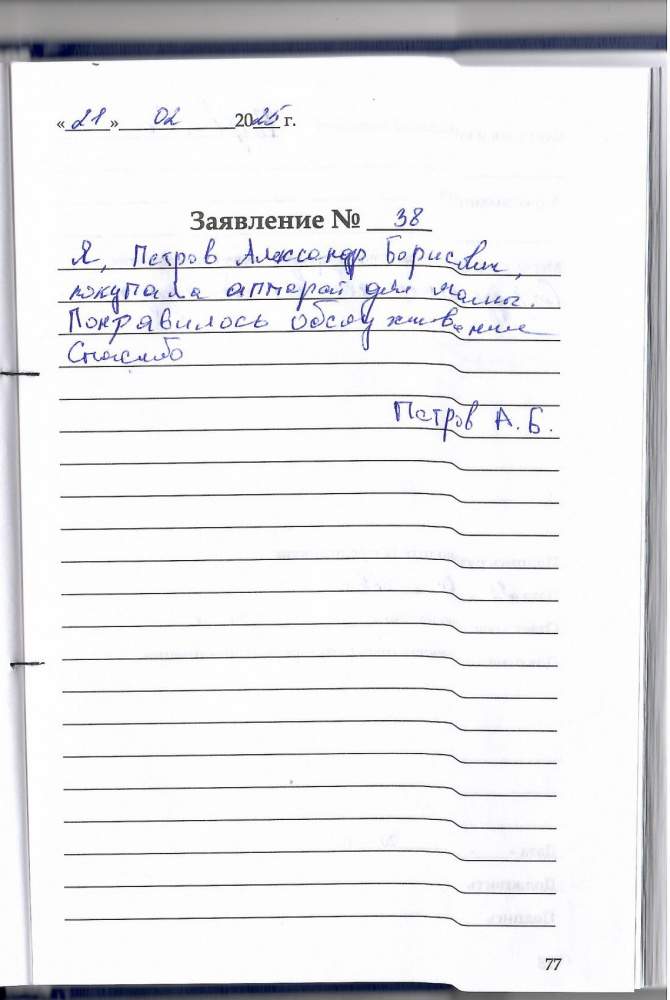 «21» 02 2025 г.
Заявление № 38
Я, Петров Александр Борисович,
покупала аппарат для мамы.
Понравилось обслуживание
Спасибо
Петров А. Б.
Дата
Должность
Подпись
77